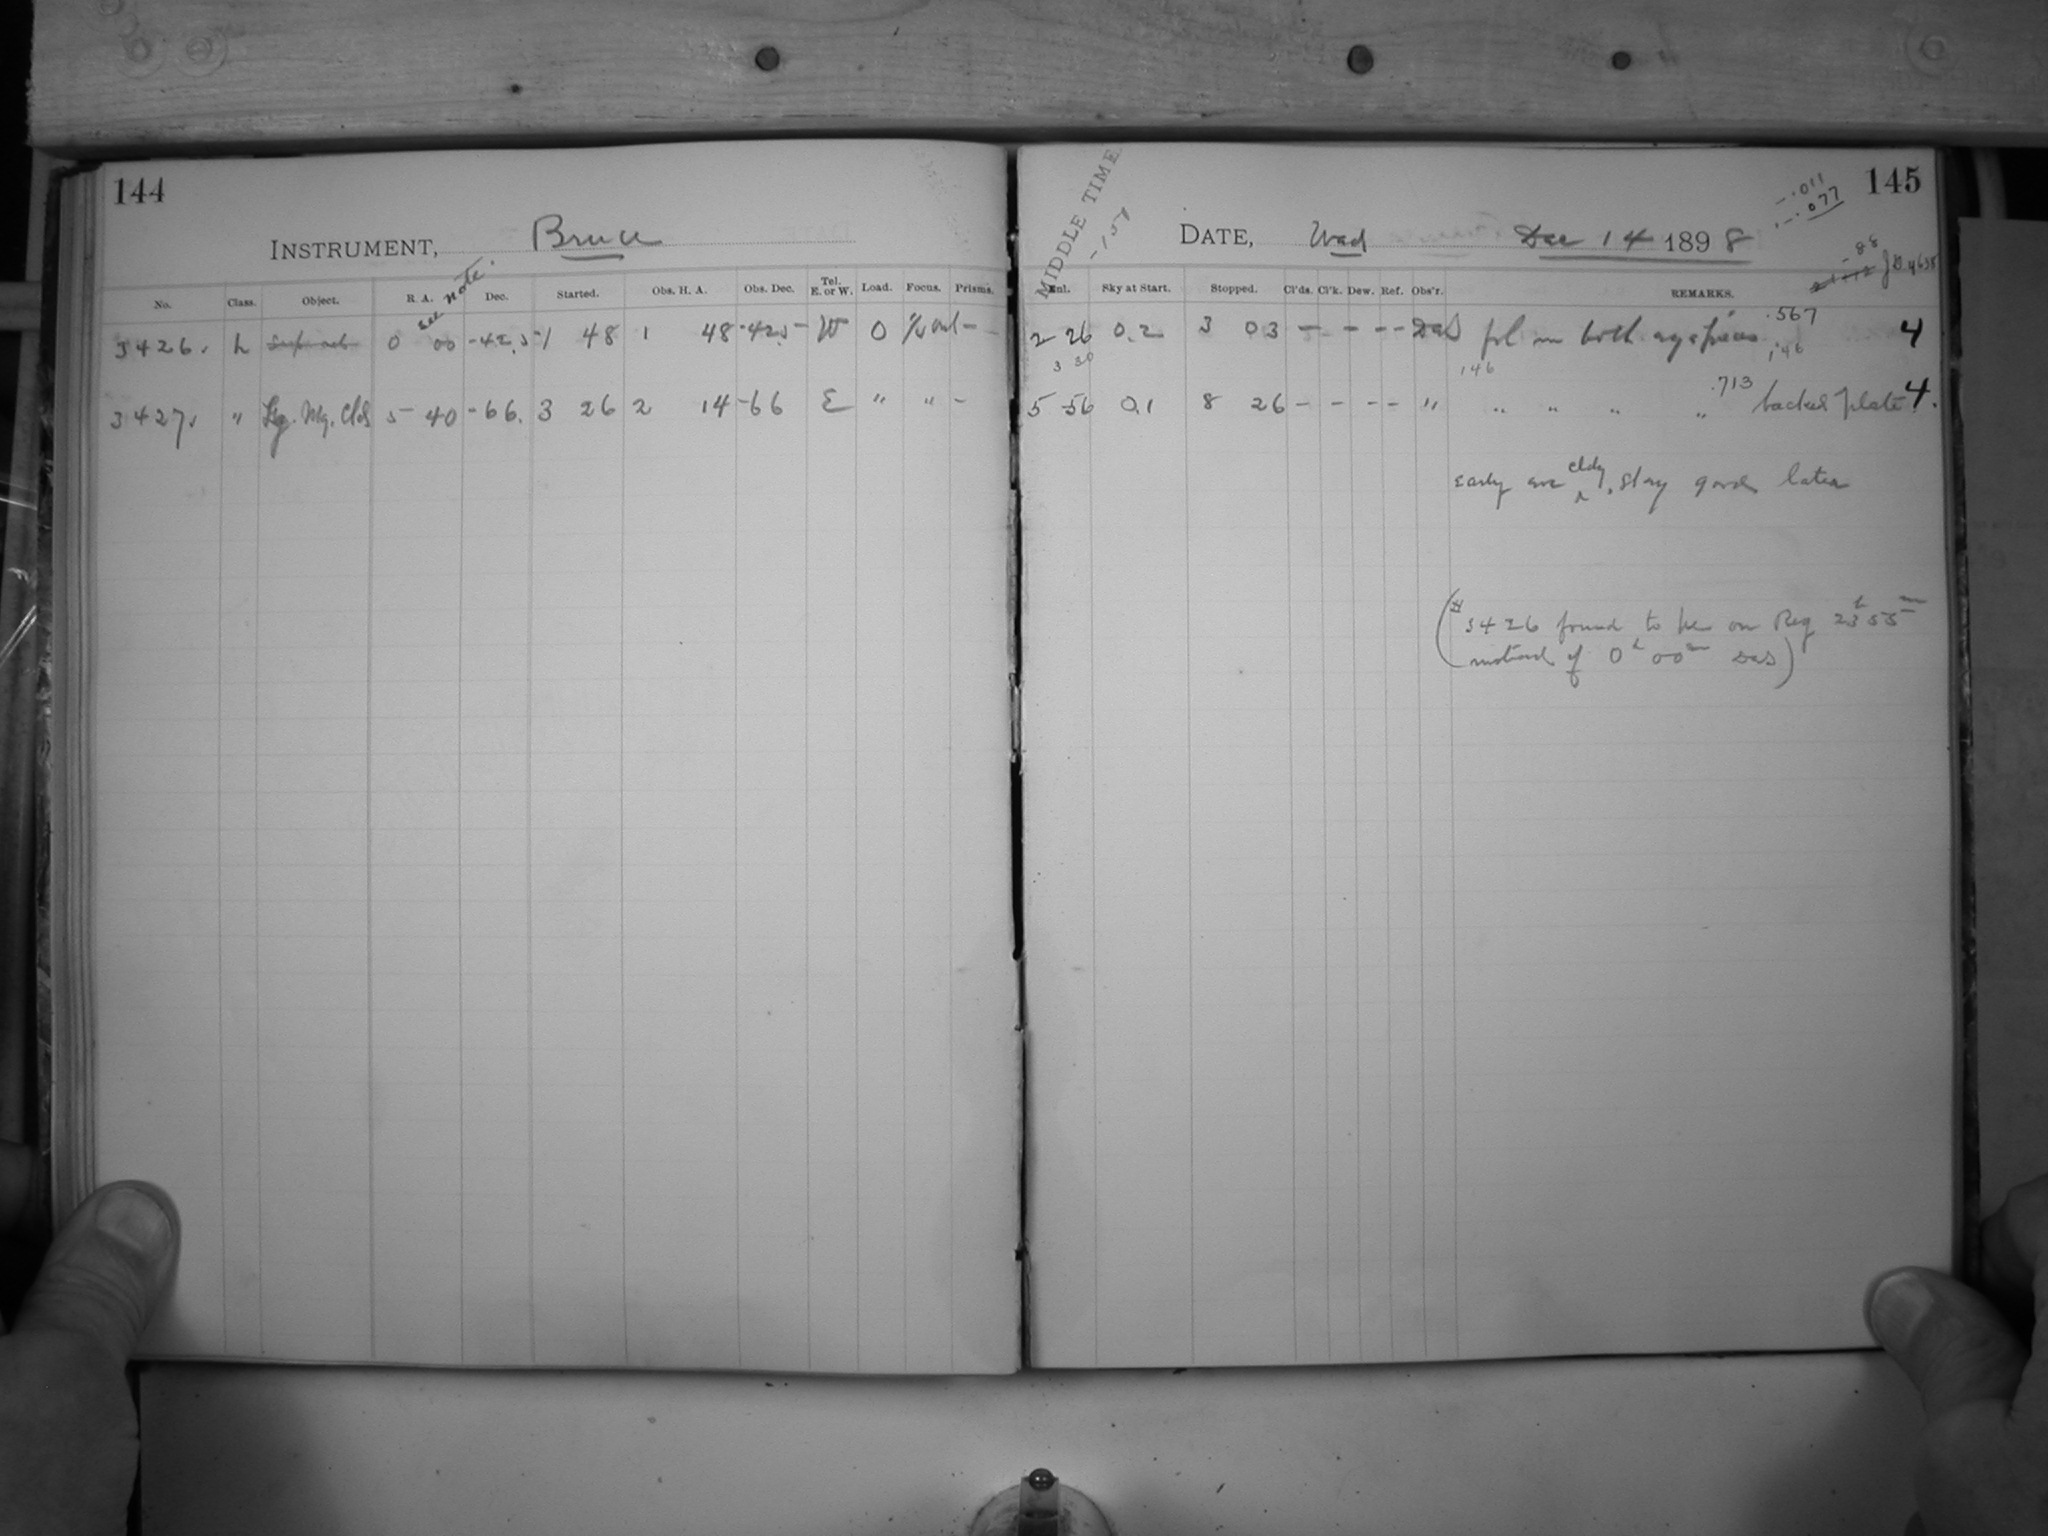 144
INSTRUMENT, Bruce
see note.
No. Class. Object. R. A. Dec. Started. Obs. H. A. Obs. Dec. Tel. E. or W. Load. Focus. Prisms.
3426. L 0 00 -42.5 1 48 1 48 -42.5 W 0 —
3427. " Lg. Mg. Clds 5 40 -66. 3 26 2 14 -66 E " " —
145
-.011
-.077
MIDDLE TIME
DATE, Wed Dec 14 1898
-.88
J.D. 4638
Sky at Start. Stopped. Cl'ds. Cl'k. Dew. Ref. Obs'r. REMARKS.
2 26 0.2 3 03 — — — — DAS in both .567 4
3 30 146
5 56 0.1 8 26 — — — — " " " " " .713 backed plate 4.
early eve cldy, sky good later
(# 3426 found to be on Reg 23h 55m
instead of 0h 00m DAS)